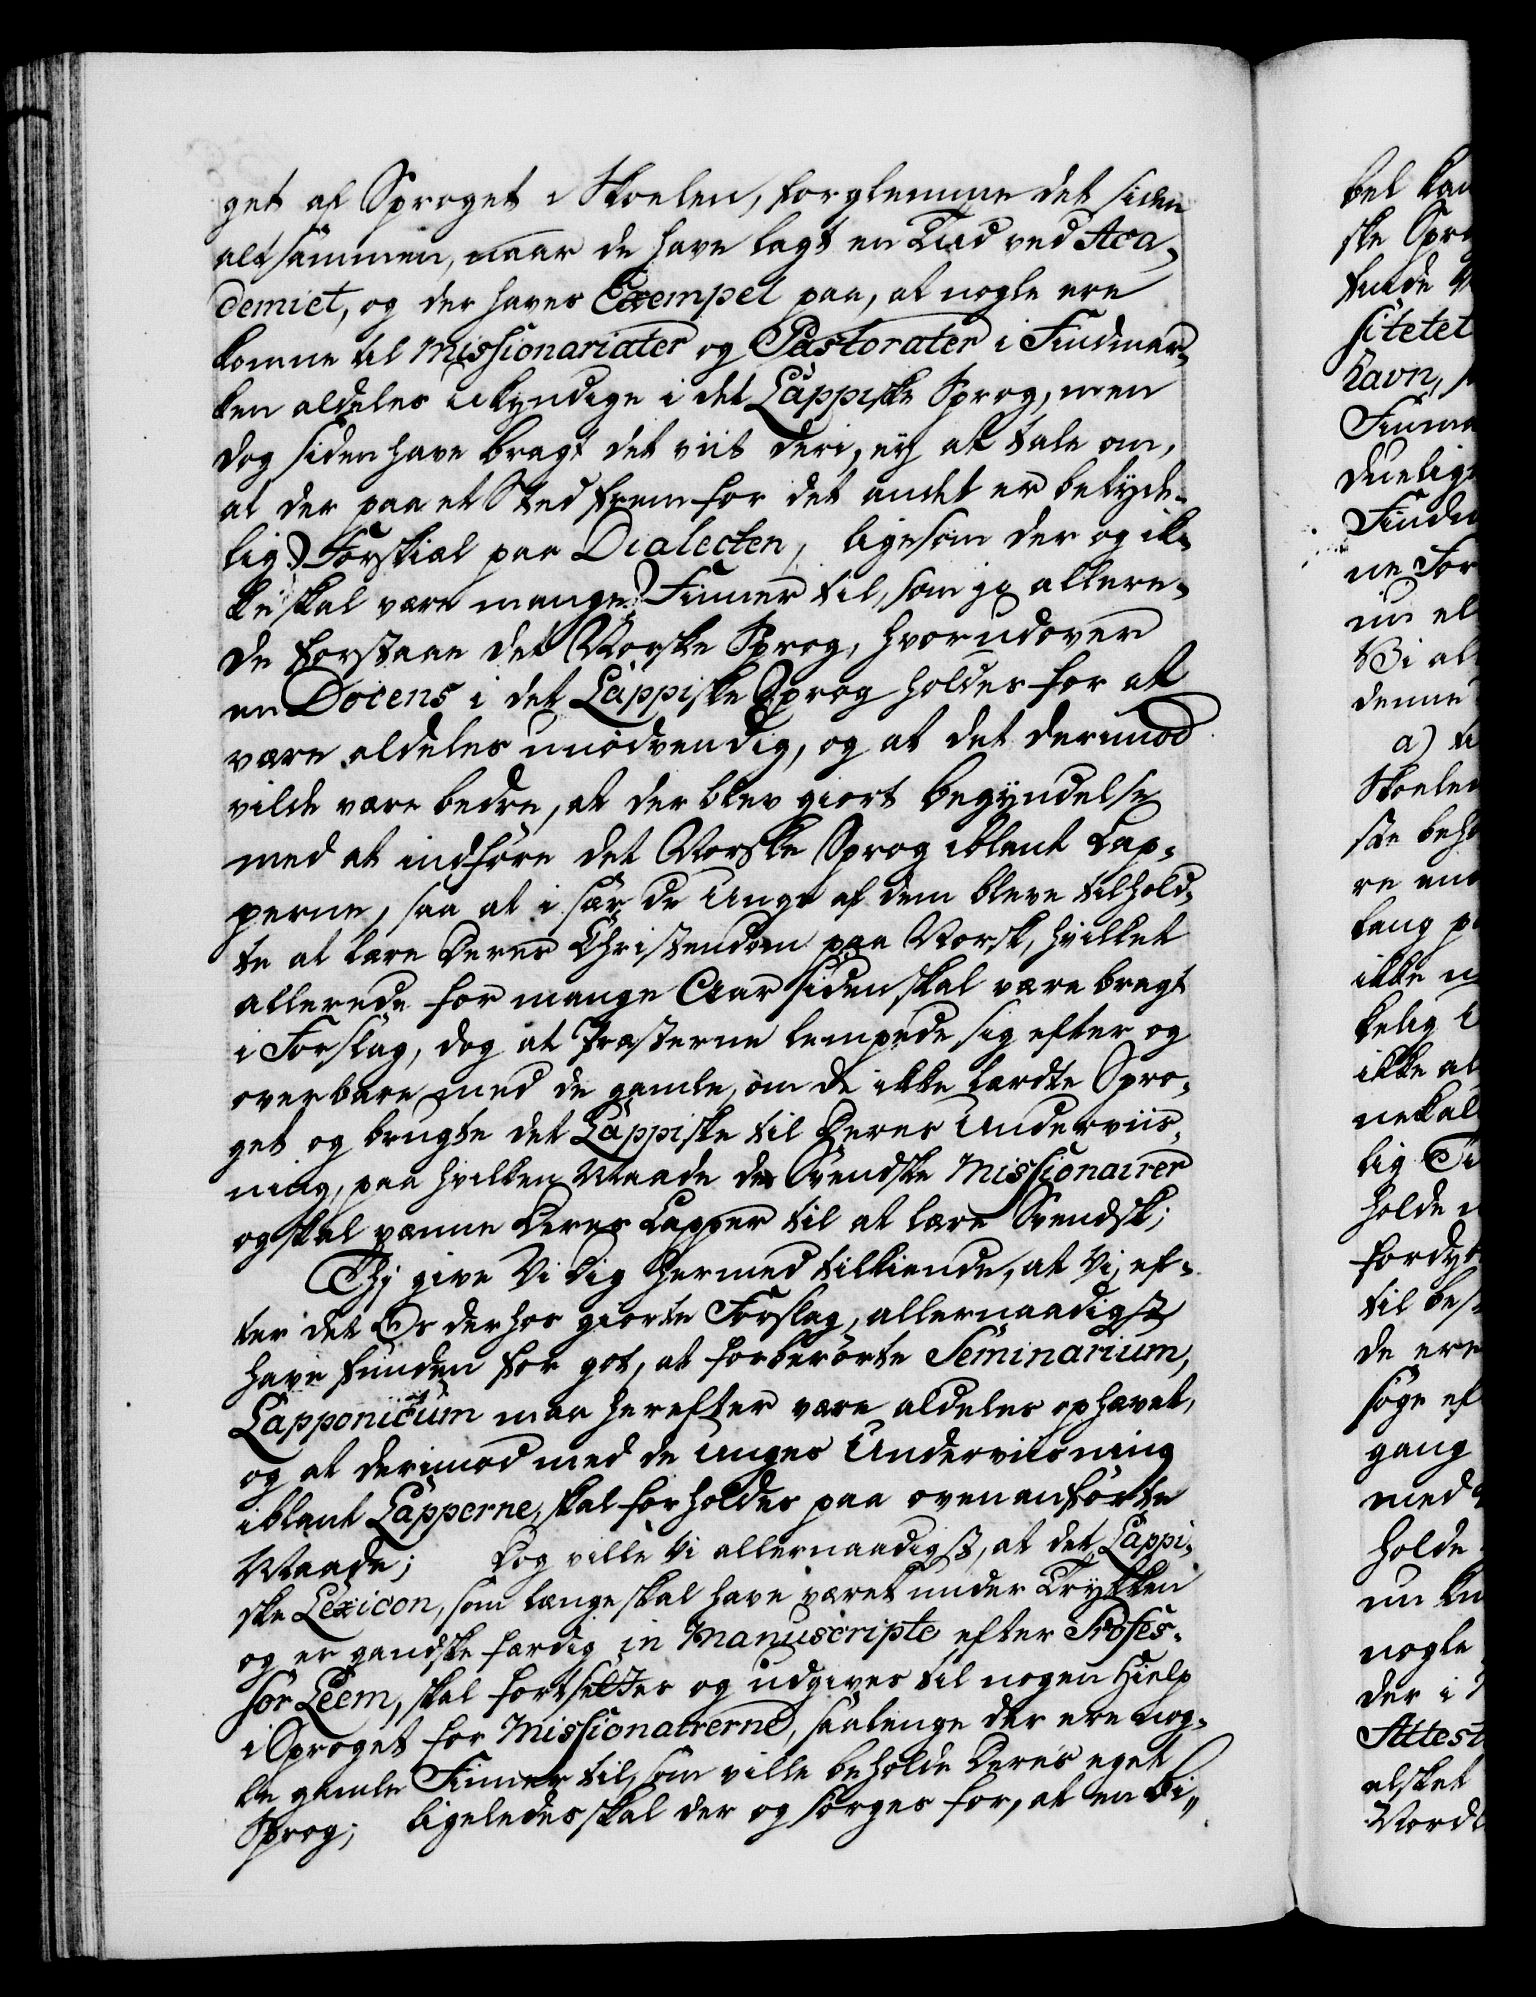 get af Sproget i Skoelen, forglemme det siden
altsammen, naar de have lagt en Tiid ved Aca-
demiet, og der haves Exempel paa, at nogle ere
komne til Missionariater og Pastorater i Findmar-
ken aldeles ukyndige i det Lappiske Sprog, men
dog siden have bragt det viit deri, ey at tale om,
at der paa et Sted frem for det andet er betyde-
lig Forskiæl paa Dialecten, ligesom der og ik-
ke skal være mange Finner til, som jo allere-
de forstaae det Norske Sprog, hvorudover
en Docens i det Lappiske Sprog holdes for at
være aldeles unødvendig, og at det derimod
vilde være bedre, at der blev giort begyndelse
med at indføre det Norske Sprog iblant Lap-
perne, saa at i sær de Unge af dem bleve tilhold-
te at lære deres Christendom paa Norsk, hvilket
allerede for mange Aar siden skal være bragt
i Forslag, dog at Præsterne lempede sig efter og
overbare med de gamle, om de ikke lærdte Spro-
get og brugte det Lappiske til deres Underviis-
ning, paa hvilken Maade de Svendske Missionairer
og skal vænne deres Lapper til at lære Svendsk;
Thi give Vi dig hermed tilkiende, at Vi, ef-
ter det Os derhos giorte Forslag, allernaadigst
have funden for got, at forberørte Seminarium
Lapponicum maa herefter være aldeles ophævet,
og at derimod med de Unges Underviisning
iblant Lapperne, skal forholdes paa ovenanførte
Maade; Dog ville Vi allernaadigst, at det Lappi-
ske Lexicon, som længe skal have været under Trykken
og er gandske færdig in Manuscripto efter Profes-
sor Leem, skal fortsettes og udgives til nogen Hielp
i Sproget for Missionairerne, saalenge der ere nog-
le gamle Finner til, som ville beholde deres eget
Sprog; ligeledes skal der og sørges for, at en Bi-
bel kan
ske Spro
siktetet
havn,
Finma
duelig
Findm
ne For
nu el
Vi al
denne
a)
Skoelen
re
lang
ikke
kelig
ikke al
nekal
lig Ti
holde
fordyb
til bes
de ere
søge ef
gang
med
holde
nogle
der i
Attest
elsket
Nord